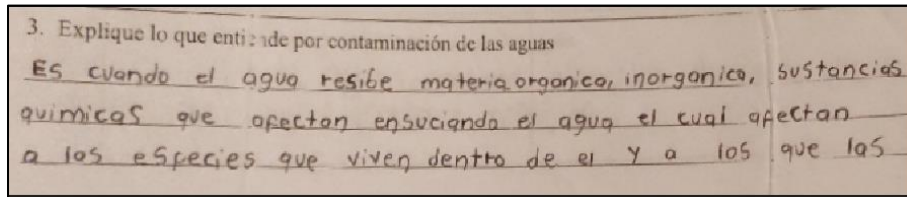 3. Explique lo que entiende por contaminación de las aguas
Es cuando el agua resibe materia organica, inorganica, sustancias
quimicas que afectan ensuciando el agua el cual afectan
a los especies que viven dentro de el y a los que las